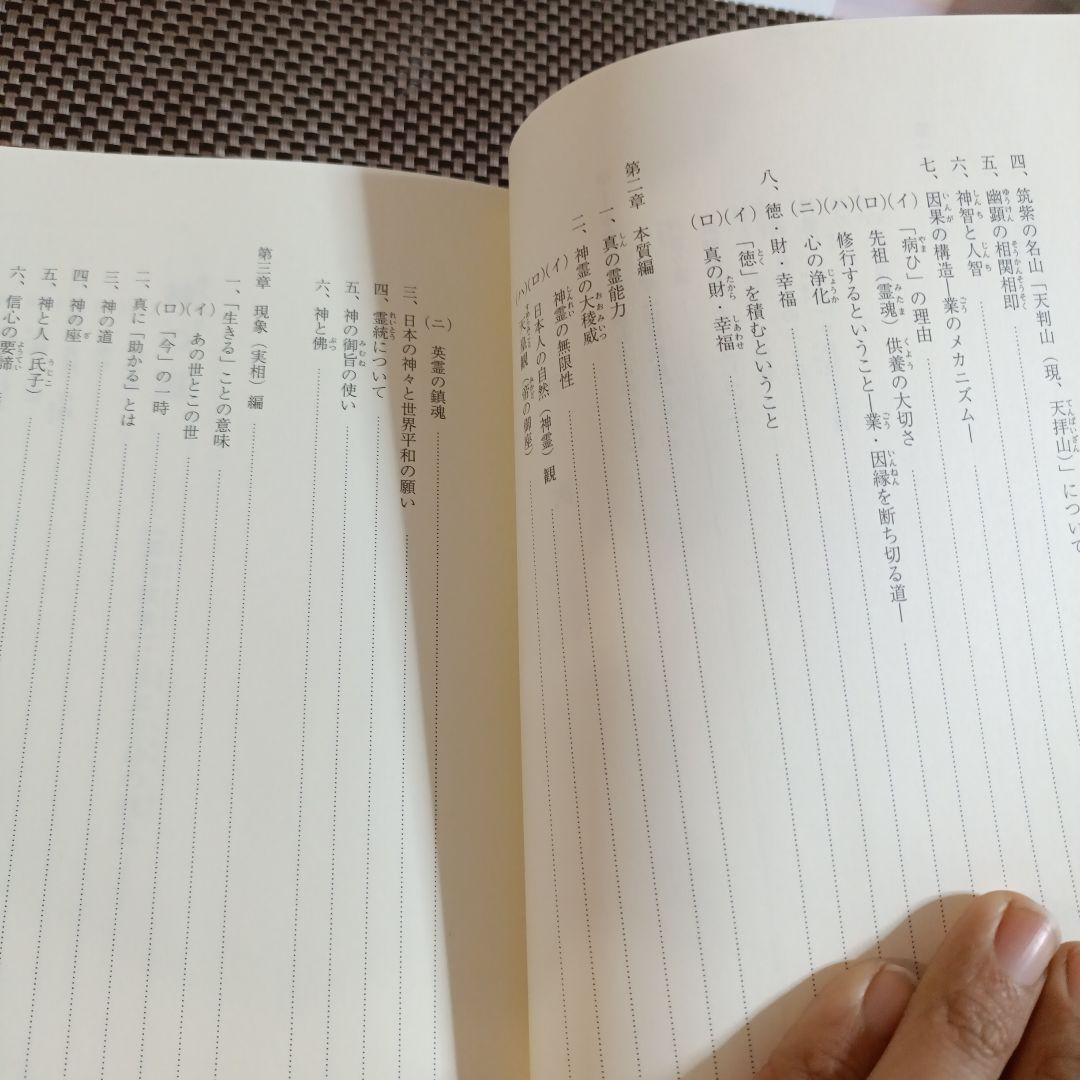 四、筑紫の名山「天判山（現、天拝山）」について
五、幽顕の相関相即
六、神智と人智
七、因果の構造―業のメカニズム―
（イ）「病ひ」の理由
（ロ）先祖（霊魂）供養の大切さ
（ハ）修行するということ―業・因縁を断ち切る道―
（ニ）心の浄化
八、徳・財・幸福
（イ）「徳」を積むということ
（ロ）真の財・幸福
第二章　本質編
一、真の霊能力
二、神霊の大稜威
（イ）神霊の無限性
（ロ）日本人の自然（神霊）観
（ハ）（帝の御座）
（ニ）英霊の鎮魂
三、日本の神々と世界平和の願い
四、霊統について
五、神の御旨の使い
六、神と佛
第三章　現象（実相）編
一、「生きる」ことの意味
（イ）あの世とこの世
（ロ）「今」の一時
二、真に「助かる」とは
三、神の道
四、神の座
五、神と人（氏子）
六、信心の要諦